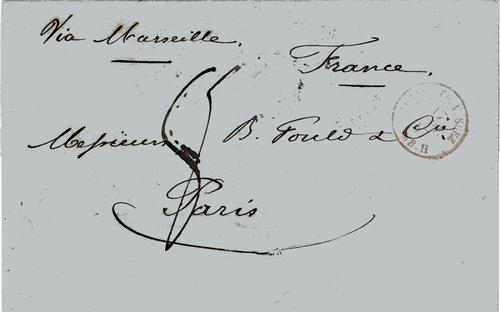 Via Marseille.
France.
Messieurs B. Fould & Cie
Paris
SUEZ